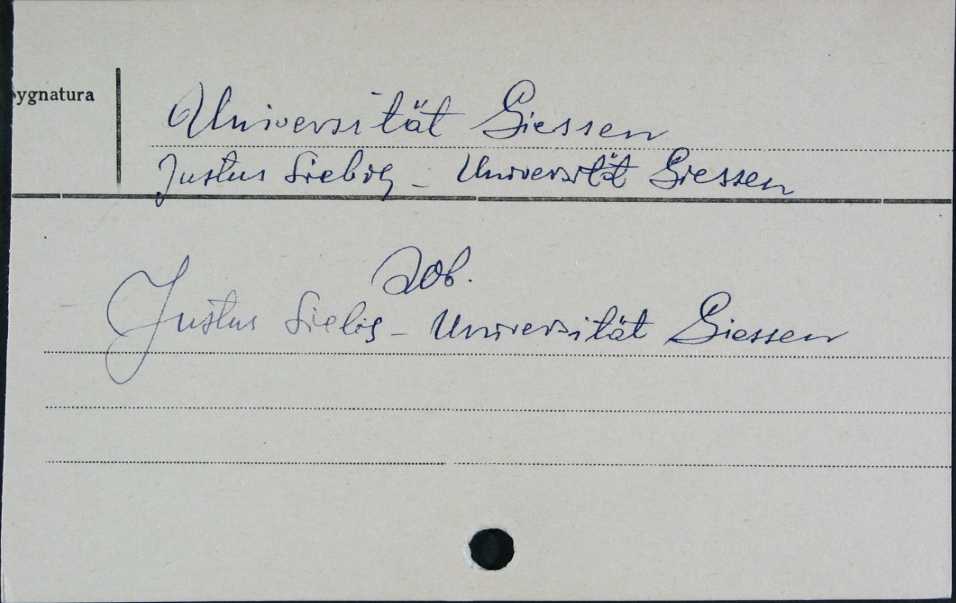 ygnatura
Universität Giessen
Justus Liebig - Universität Giessen
zob.
Justus Liebig - Universität Giessen